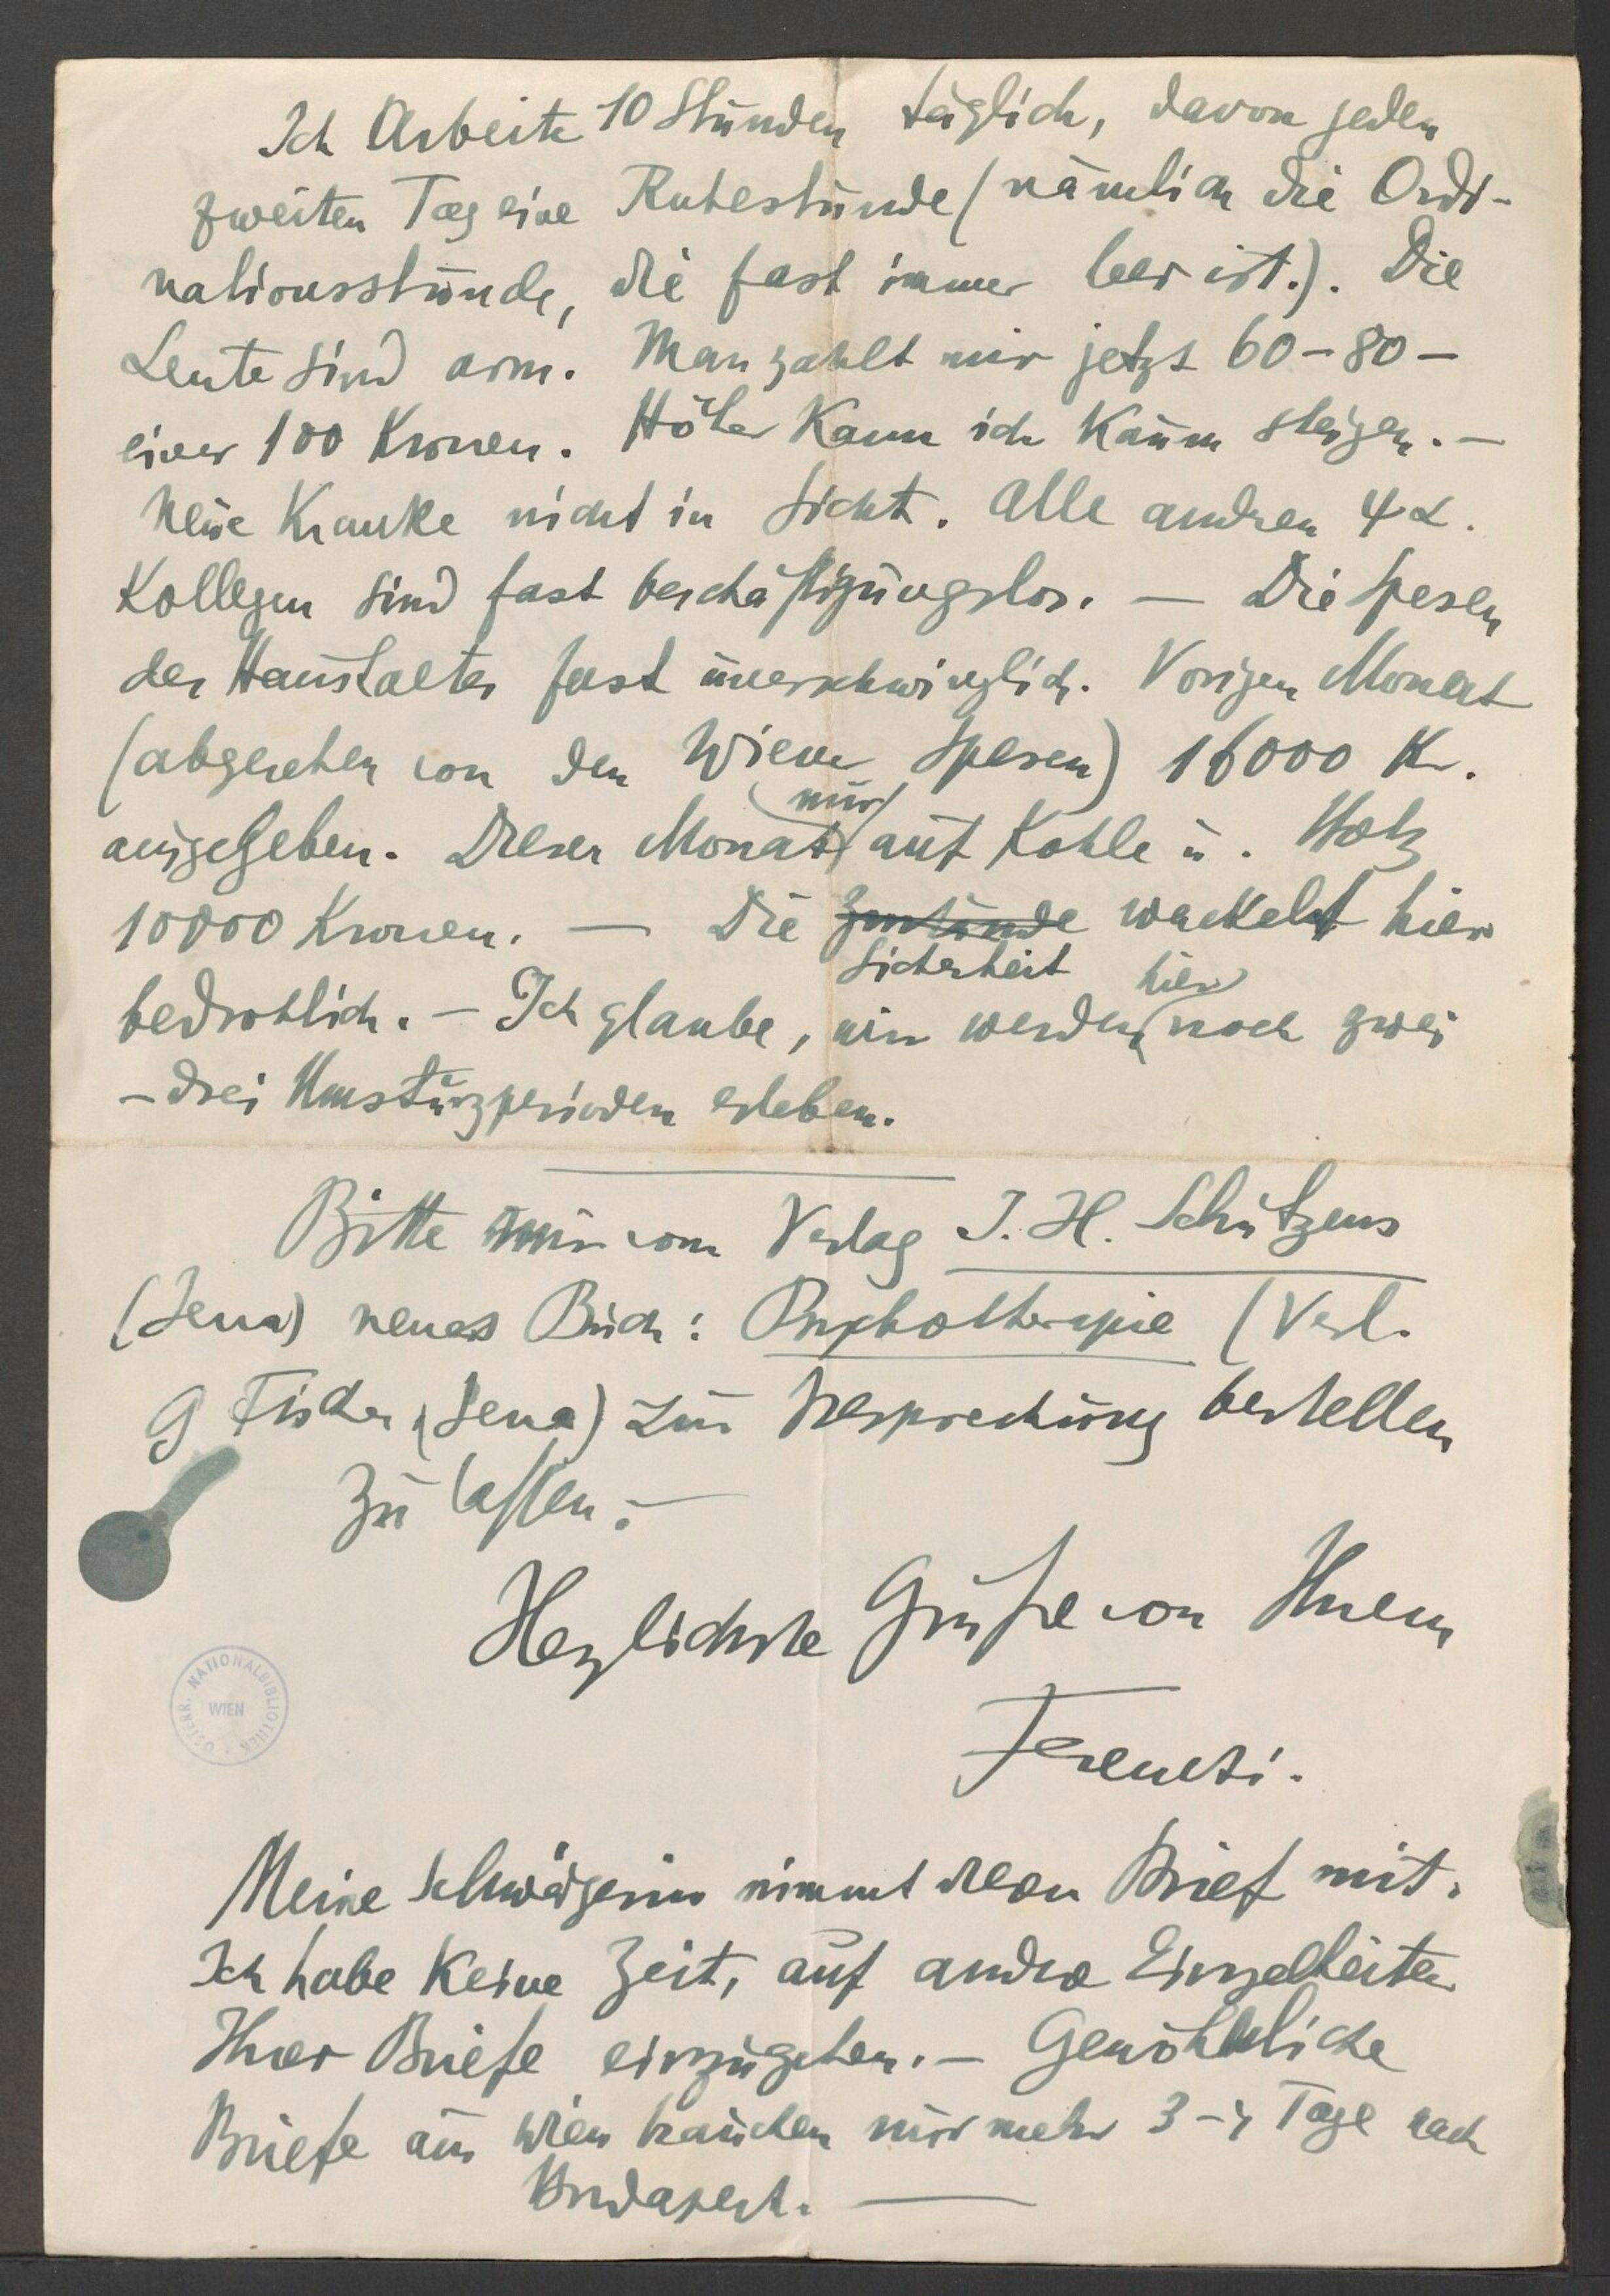 Ich Arbeite 10 Stunden täglich, davon jeden
zweiten Tag eine Ruhestunde (nämlich die Ordi-
nationsstunde, die fast immer leer ist.). Die
Leute sind arm. Man zahlt mir jetzt 60–80–
einer 100 Kronen. Höher kann ich kaum steigen. –
Neue Kranke nicht in Sicht. Alle andren ψα.
Kollegen sind fast beschäftigungslos. — Die Spesen
des Haushaltes fast unerschwinglich. Vorigen Monat
(abgesehen von den Wiener Spesen) 16000 Kr.
ausgegeben. Dieser Monat nur auf Kohle u. Holz
10000 Kronen. — Die Zustände wackelt hier
Sicherheit hier
bedrohlich. – Ich glaube, wir werden noch zwei
– drei Umsturzperioden erleben.
Bitte mir vom Verlag I. H. Schultzens
(Jena) neues Buch: Psychotherapie (Verl.
G Fischer, Jena) zur Besprechung bestellen
zu lassen. –
Herzlichste Grüße von Ihrem
Ferenczi.
Meine Schwägerin nimmt den Brief mit.
Ich habe keine Zeit, auf andre Einzelheiten
Ihrer Briefe einzugehen. – Gewöhnliche
Briefe aus Wien brauchen nur mehr 3–4 Tage nach
Budapest. —
ÖSTERR. NATIONALBIBLIOTHEK · WIEN